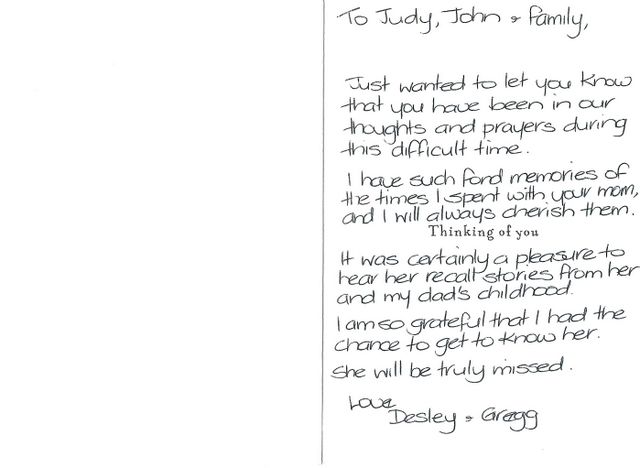 To Judy, John & family,
Just wanted to let you know
that you have been in our
thoughts and prayers during
this difficult time.
I have such fond memories of
the times I spent with your mom,
and I will always cherish them.
Thinking of you
It was certainly a pleasure to
hear her recall stories from her
and my dad's childhood.
I am so grateful that I had the
chance to get to know her.
She will be truly missed.
Love
Desley & Gregg